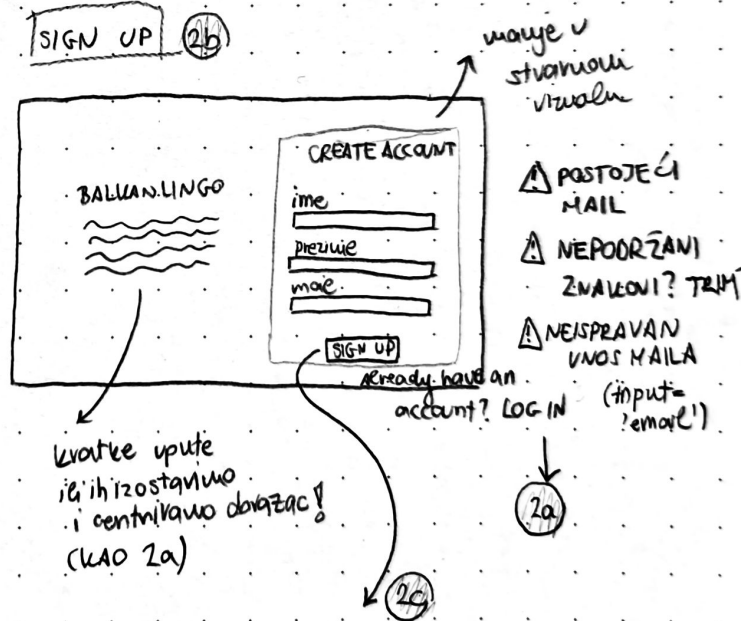 SIGN UP 2b
manje u
stvarnom
vizualu
CREATE ACCOUNT
BALKAN.LINGO
ime
prezime
mail
SIGN UP
Already have an
account? LOGIN
2a
⚠ POSTOJEĆI
MAIL
⚠ NEPODRŽANI
ZNAKOVI? TRIM
⚠ NEISPRAVAN
UNOS MAILA
(input=
'email')
kratke upute
ili ih izostavimo
i centriramo obrazac!
(KAO 2a)
2c